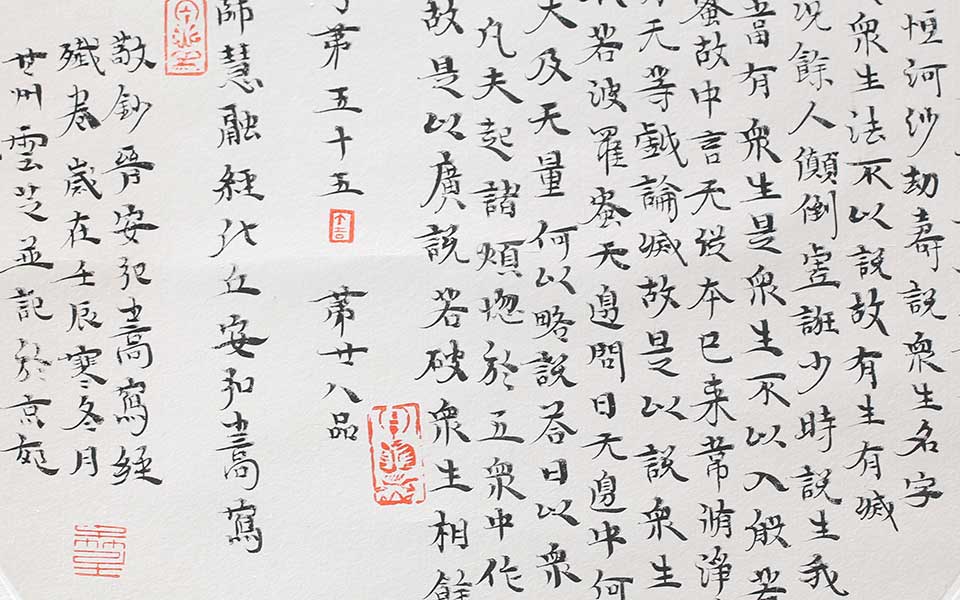 恒河沙劫壽說衆生名字
衆生法不以說故有生有滅
況餘人顛倒虛誑少時說生我
當有衆生是衆生不以入般若
蜜故中言无從本已来常清淨
无等戲論滅故是以說衆生
若波羅蜜无邊問曰无邊中何
大及无量何以略說荅曰以衆
凡夫起諸煩惱於五衆中作
故是以廣說若破衆生相餘
第五十五 大吉 第廿八品
師慧融經比丘安弘嵩寫
敬鈔晉安弘嵩寫經
殘卷歲在壬辰寒冬月
州雲芝並記於京